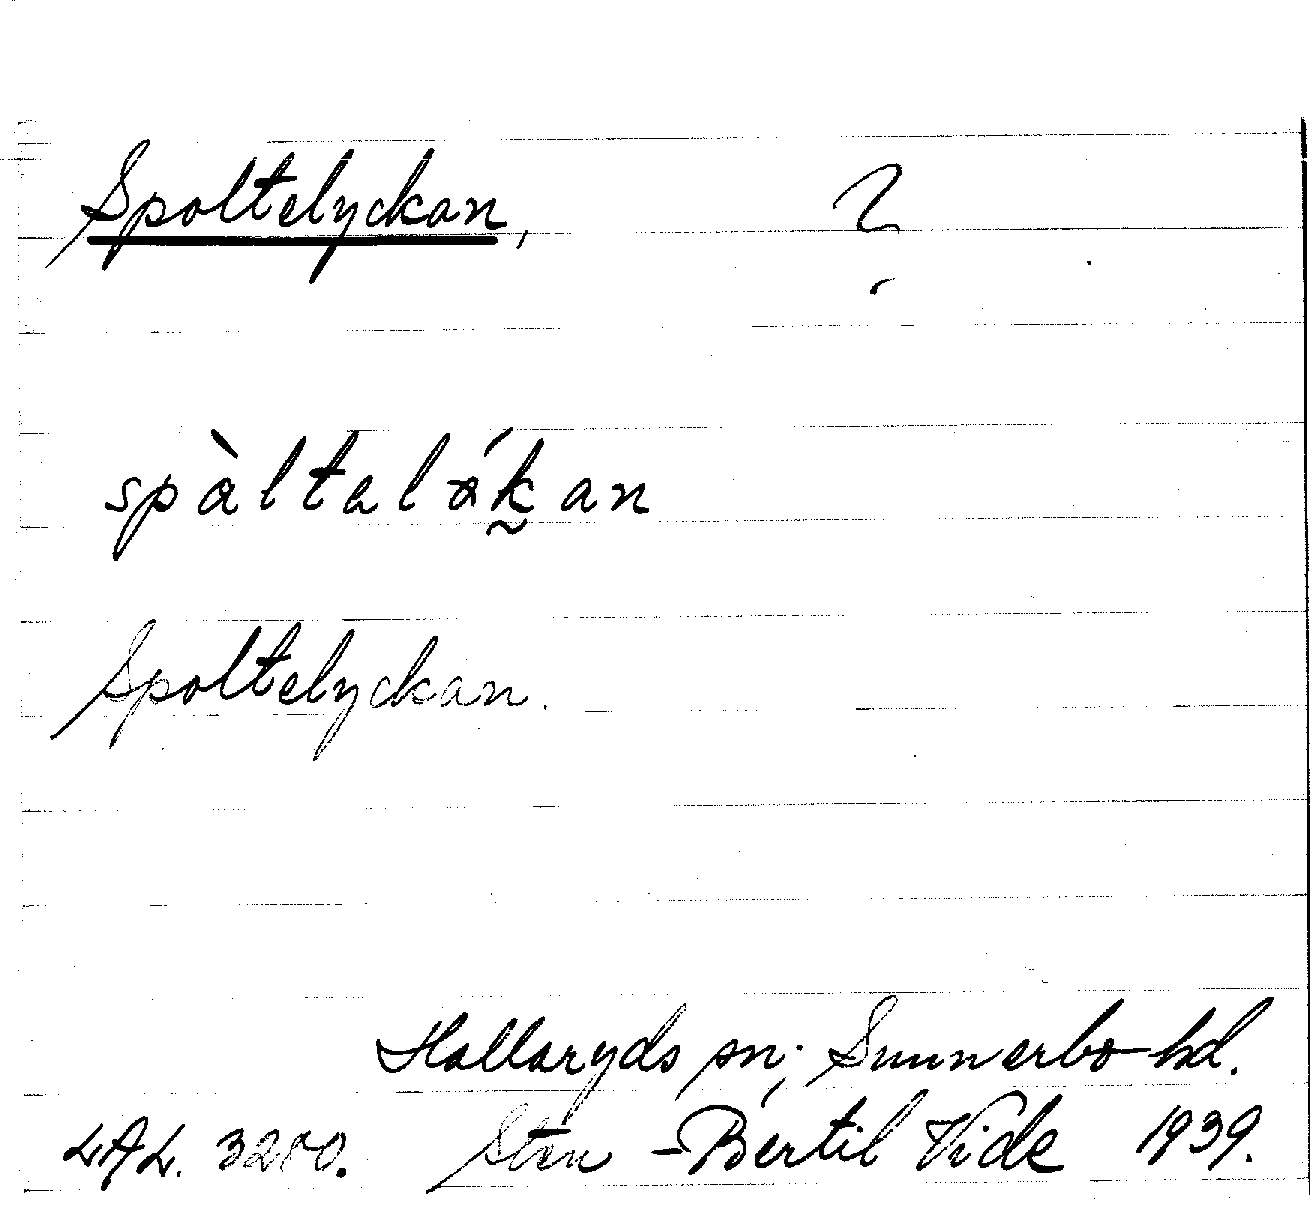 Spoltelyckan, ?
spàltaló̵k̰an
Spoltelyckan.
Hallaryds sn; Sunnerbo hd.
LAL. 3200. Sten-Bertil Vide 1939.